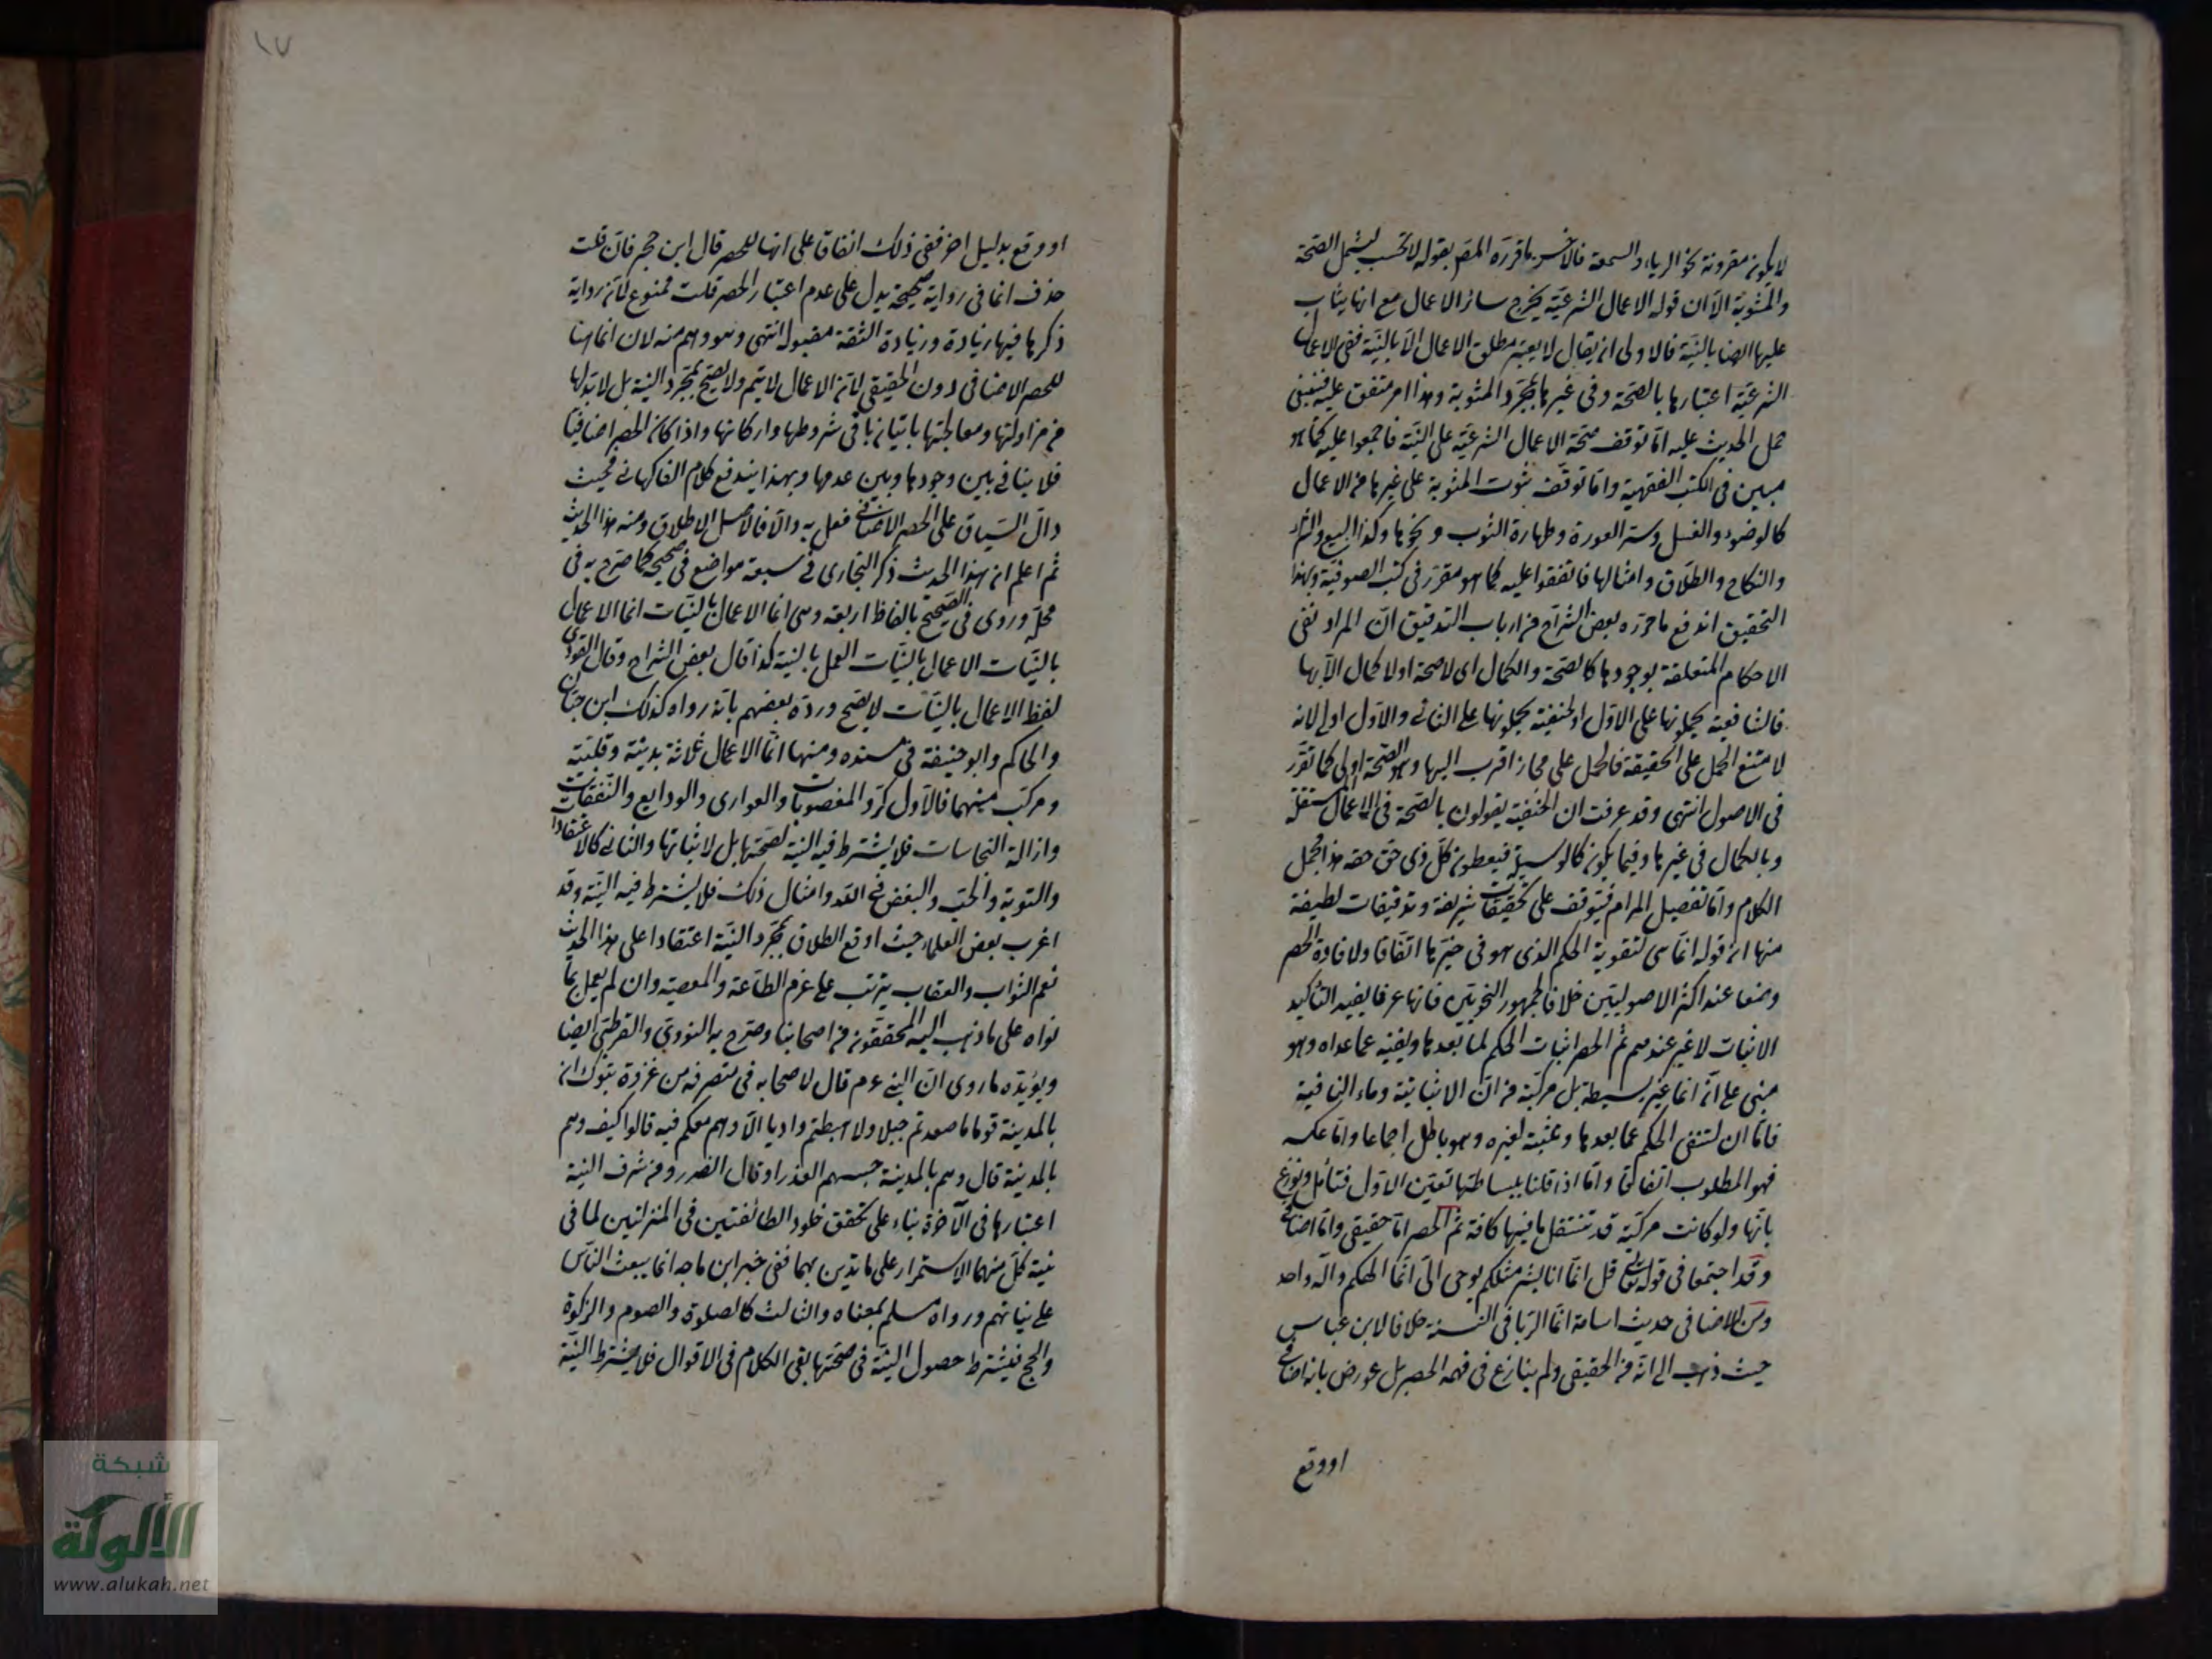 لا يكون مقرونة بنحو الرياء والسمعة فالاحسن ما قرره المص بقوله لا تحسب ليشمل الصحة
والمثوبة الا ان قوله الاعمال الشرعية يخرج سائر الاعمال مع انها يثاب
عليها ايضا بالنية فالاولى ان يقال لا يعتبر مطلق الاعمال الا بالنية ففي الاعمال
الشرعية اعتبارها بالصحة وفي غيرها بمجرد المثوبة وهذا امر متفق عليه فينبغي
حمل الحديث عليه اما توقف صحة الاعمال الشرعية على النية فاجمعوا عليه كما هو
مبين في الكتب الفقهية واما توقف ثبوت المثوبة على غيرها من الاعمال
كالوضوء والغسل وستر العورة وطهارة الثوب ونحوها وكذا البيع والشراء
والنكاح والطلاق وامثالها فاتفقوا عليه كما هو مقرر في كتب الصوفية وبهذا
التحقيق اندفع ما حرره بعض الشراح من ارباب التدقيق ان المراد نفي
الاحكام المتعلقة بوجودها كالصحة والكمال اي لا صحة او لا كمال الا بها
فالشافعية يحملونها على الاول والحنفية يحملونها على الثاني والاول اولى لانه
لا متنع الحمل على الحقيقة فالحمل على مجاز اقرب اليها وهو الصحة اولى كما تقرر
في الاصول انتهى وقد عرفت ان الحنفية يقولون بالصحة في الاعمال المستقلة
وبالكمال في غيرها وفيما يكون كالوسيلة فيعطون كل ذي حق حقه هذا مجمل
الكلام واما تفصيل المرام فيتوقف على تحقيقات شريفة وتدقيقات لطيفة
منها ان قوله انما هي لتقوية الحكم الذي هو في حيزها اتفاقا ولافادة الحصر
وضعا عند اكثر الاصوليين خلافا لجمهور النحويين فانها عرفا يفيد التأكيد
الاثبات لا غير عندهم ثم الحصر اثبات الحكم لما بعدها ونفيه عما عداه وهو
مبني على ان انما غير بسيطة بل مركبة من ان الاثباتية وماء النافية
فاما ان لتنفي الحكم عما بعدها وتثبته لغيره وهو باطل اجماعا واما عكسه
فهو المطلوب اتفاقا واما اذا قلنا ببساطتها تعين الاول فتأمل ونوزع
بانها ولو كانت مركبة قد تنتقل ما فيها كافة ثم الحصر اما حقيقي واما اضافي
وقد اجتمعا في قوله تعالى قل انما انا بشر مثلكم يوحى الي انما الهكم واله واحد
ومن الاضافي حديث اسامة انما الربا في النسية خلافا لابن عباس
حيث ذهب الى انه من الحقيقي ولم ينازع في فهمه الحصر بل عورض بانه اضافي
او وقع
او وقع بدليل اخر ففي ذلك اتفاقا على انها للحصر قال ابن حجر فان قلت
حذف انما في رواية صحيحة يدل على عدم اعتبار الحصر قلت ممنوع لان رواية
ذكرها فيها زيادة وزيادة الثقة مقبولة انتهى وهو وهم منه لان انما هنا
للحصر الاضافي دون الحقيقي لان الاعمال لا يتم ولا يصح بمجرد النية بل لا بد لها
من مزاولتها ومعالجتها باتيان باقي شروطها واركانها واذا كان الحصر اضافيا
فلا ينافي بين وجودها وبين عدمها وبهذا يندفع كلام الفاكهاني فحيث
دال السياق على الحصر الاضافي فعل به والا فالاصل الاطلاق ومنه هذا الحديث
ثم اعلم ان هذا الحديث ذكر البخاري في سبعة مواضع في صحيحه كما صرح به في
محله وروى في الصحيح بالفاظ اربعة وهي انما الاعمال بالنيات انما الاعمال
بالنيات الاعمال بالنيات العمل بالنية كذا قال بعض الشراح وقال النووي
لفظ الاعمال بالنيات لا يصح ورده بعضهم بانه رواه كذلك ابن حبان
والحاكم وابو حنيفة في مسنده ومنها انما الاعمال ثلاثة بدنية وقلبية
ومركب منهما فالاول كرد المغصوبات والعواري والودايع والنفقات
وازالة النجاسات فلا يشترط فيه النية لصحتها بل لاثباتها والثاني كالاعتقاد
والتوبة والحب والبغض في الله وامثال ذلك فلا يشترط فيه النية وقد
اغرب بعض العلماء حيث اوقع الطلاق بمجرد النية اعتقادا على هذا الحديث
نعم الثواب والعقاب يترتب على عزم الطاعة والمعصية وان لم يعمل بما
نواه على ما ذهب اليه المحققون من اصحابنا وصرح به النووي والقرطبي ايضا
ويؤيده ما روى ان النبي عم قال لاصحابه في منصرفه من غزوة تبوك ان
بالمدينة قوما ما صعدتم جبلا ولا هبطتم واديا الا وهم معكم فيه قالوا كيف وهم
بالمدينة قال وهم بالمدينة حبسهم العذر او قال الضرر ومن شرف النية
اعتبارها في الآخرة بناء على تحقق خلود الطائفتين في المنزلتين لما في
نية كل منهما الاستمرار على ما تدين بهما ففي خبر ابن ماجه انما يبعث الناس
على نياتهم ورواه مسلم بمعناه والثالث كالصلوة والصوم والزكوة
والحج فيشترط حصول النية في صحتها بقي الكلام في الاقوال فلا يشترط النية
شبكة
الألوكة
www.alukah.net